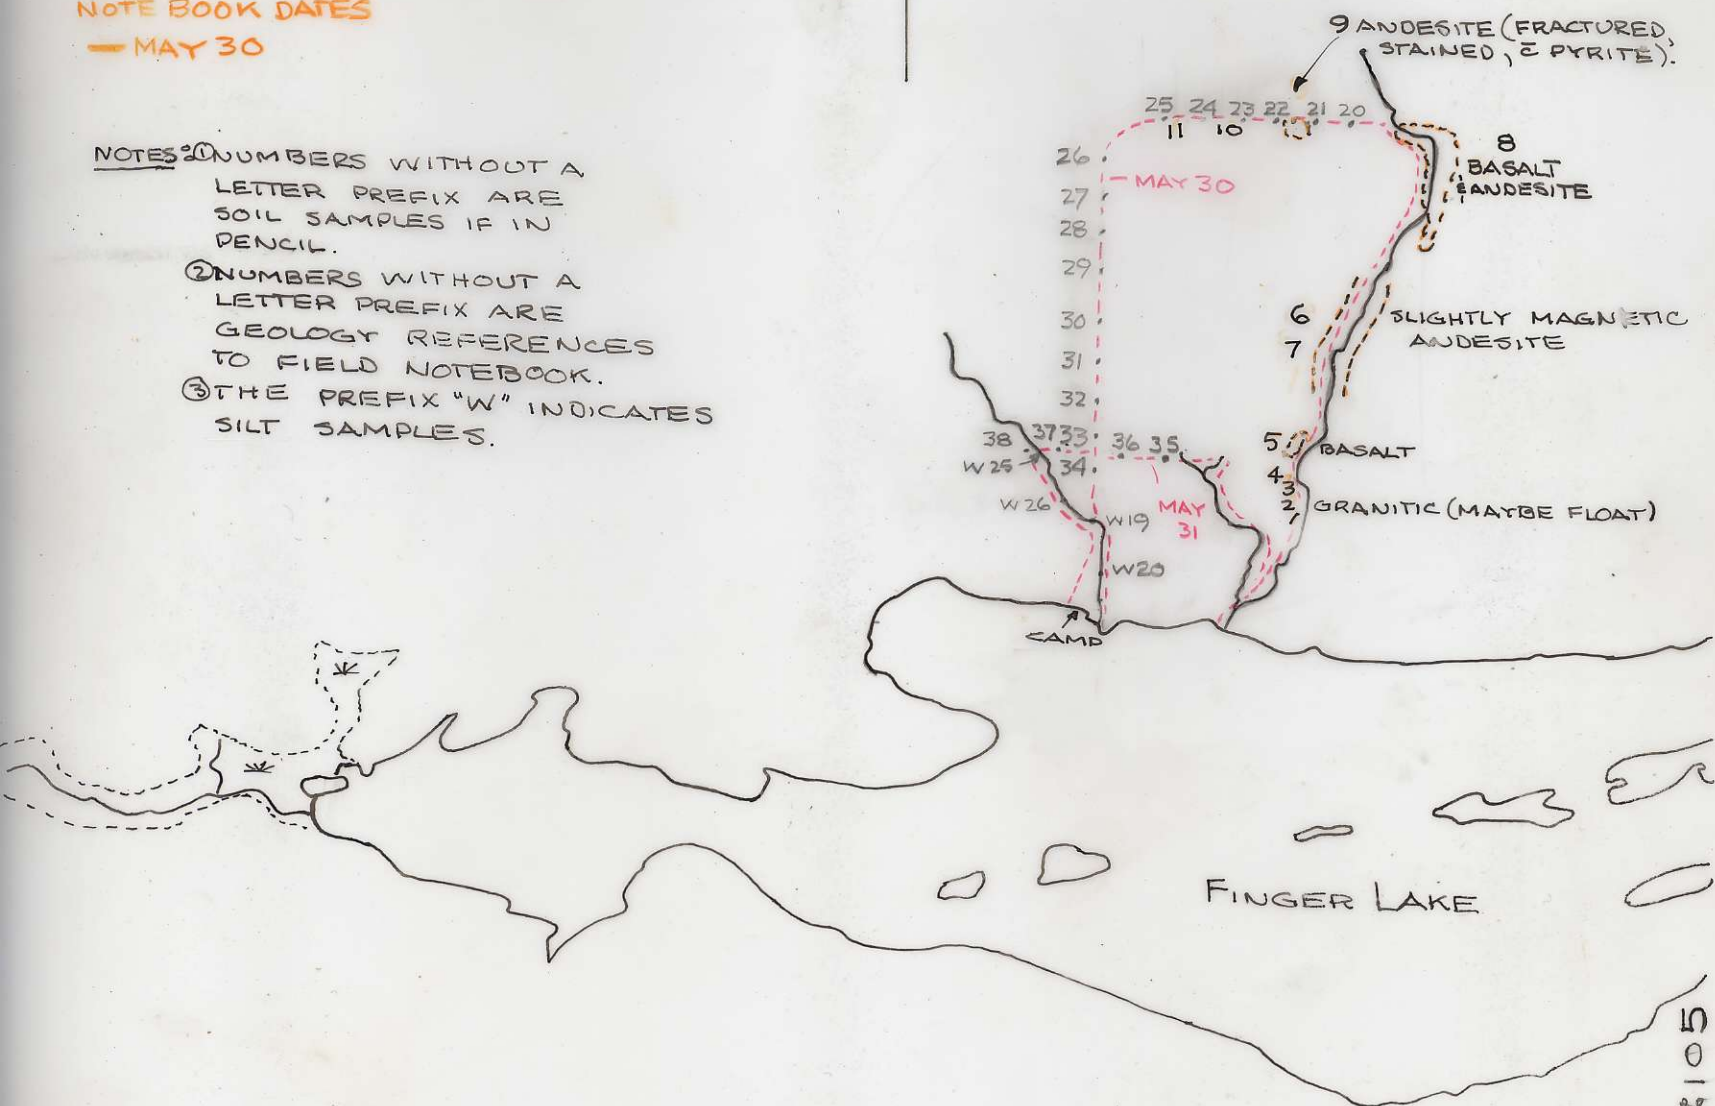 NOTE BOOK DATES
— MAY 30
NOTES: ① NUMBERS WITHOUT A
LETTER PREFIX ARE
SOIL SAMPLES IF IN
PENCIL.
② NUMBERS WITHOUT A
LETTER PREFIX ARE
GEOLOGY REFERENCES
TO FIELD NOTEBOOK.
③ THE PREFIX "W" INDICATES
SILT SAMPLES.
9 ANDESITE (FRACTURED,
STAINED, c̄ PYRITE).
25 24 23 22 21 20
11 10
8
BASALT
& ANDESITE
26
MAY 30
27
28
29
30
31
32
6
7
SLIGHTLY MAGNETIC
ANDESITE
38 37 33 36 35
W 25 34
W 26
W19
W20
MAY
31
5 BASALT
4
3
2 GRANITIC (MAYBE FLOAT)
CAMP
FINGER LAKE
105